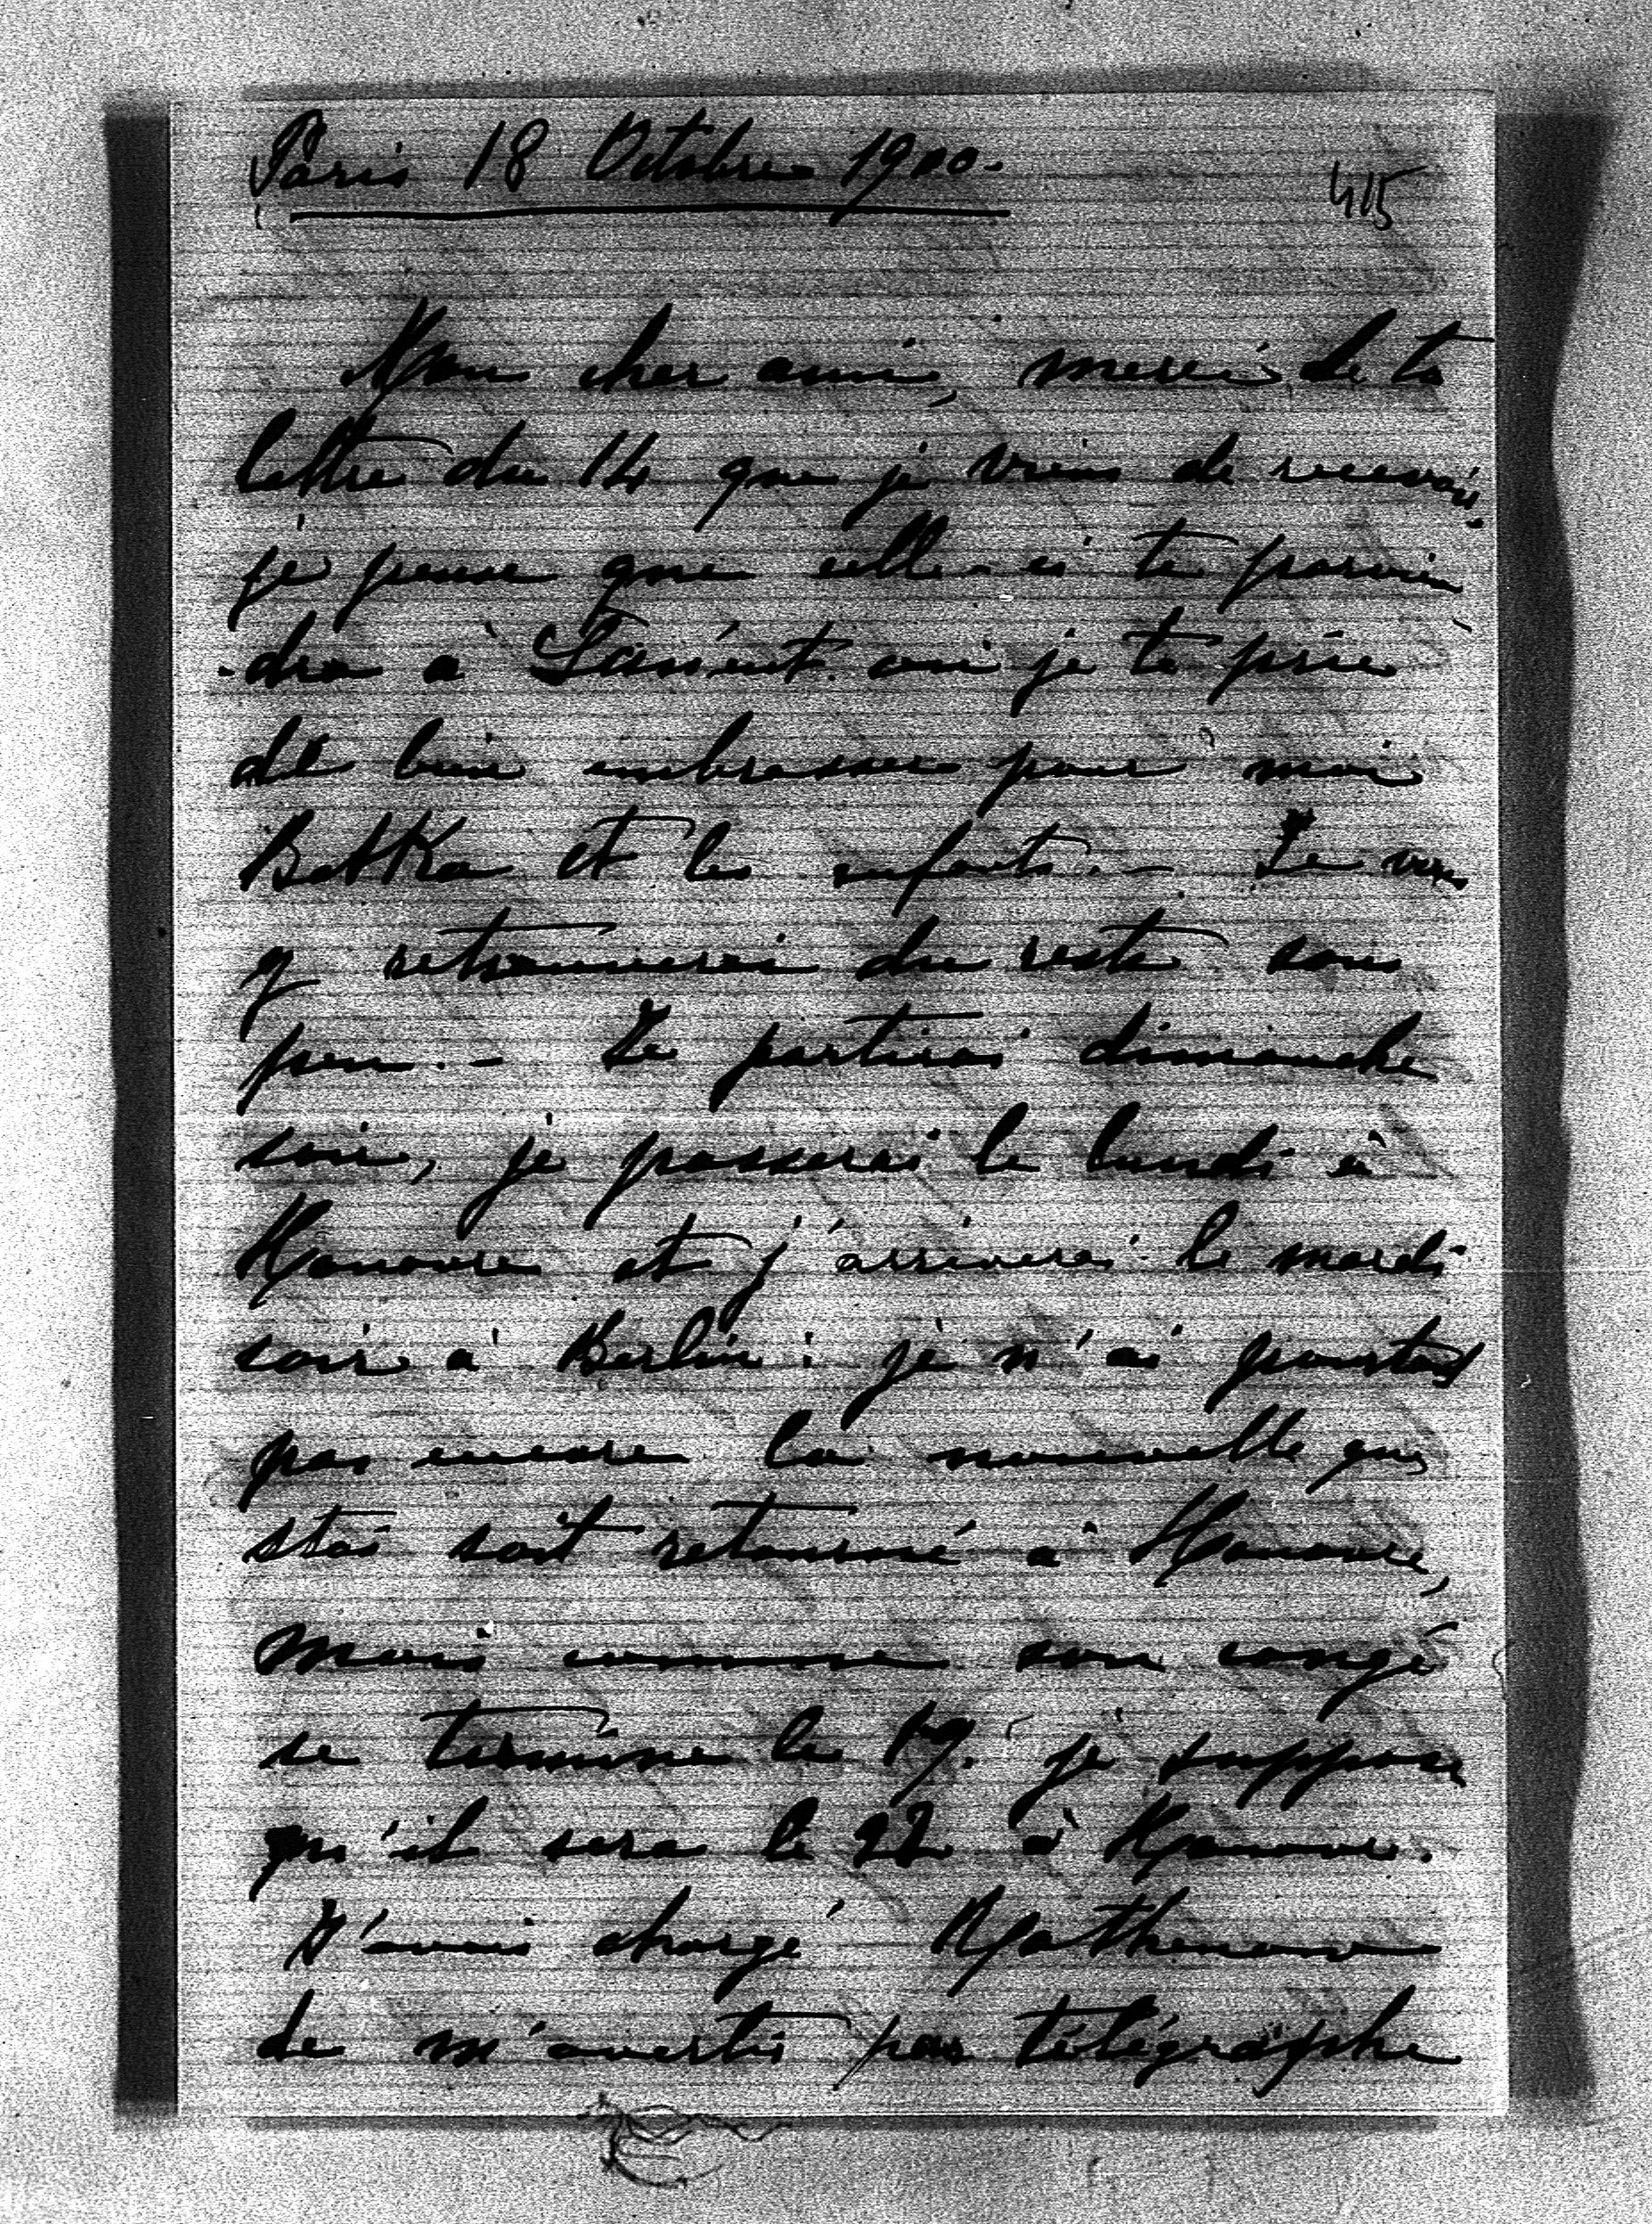 Paris 18 Octobre 1900.
415
Mon cher ami, merci de ta
lettre du 14 que je viens de recevoir.
je pense que celle-ci te parvien
-dra à Łańcut où je te prie
de bien embrasser pour moi
Betka et les enfants. – Je vous
y retrouverai du reste sous
peu. – Je partirai dimanche
soir, je passerai le lundi à
Hanovre et j'arriverai le mardi
soir à Berlin: je n'ai pourtant
pas encore la nouvelle que
Staś soit retourné à Hanovre,
mais comme son congé
se termine le 19. je suppose
qu'il sera le 22 à Hanovre.
J'avais chargé
de m'avertir par télégraphe